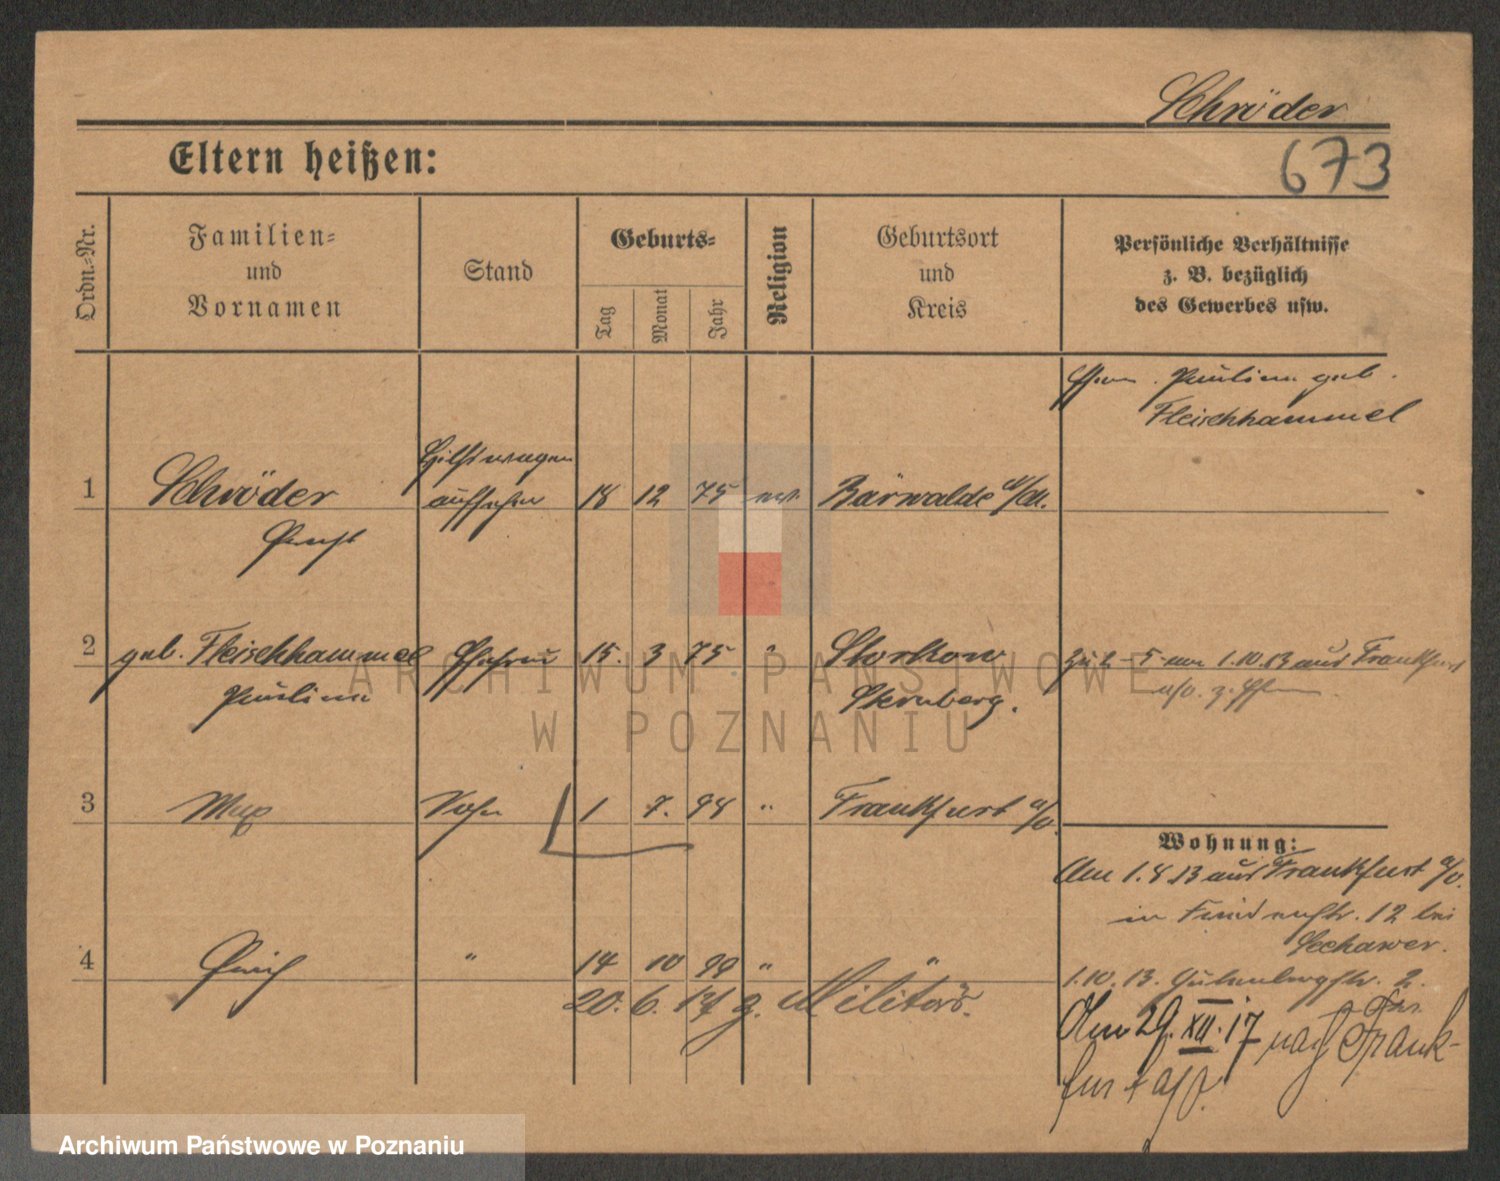 Schröder
673
Eltern heißen:
Ordn.-Nr.
Familien-
und
Vornamen
Stand
Geburts-
Tag
Monat
Jahr
Religion
Geburtsort
und
Kreis
Persönliche Verhältnisse
z. B. bezüglich
des Gewerbes usw.
Pauline geb.
Fleischhammel
1 Schröder Hilfswagen
aufseher 18 12 75 Bärwalde
2 geb. Fleischhammel Ehefrau 15. 3 75 " Storkow
Pauline Sternberg.
zu 2-5 am 1.10.13 aus Frankfurt
a/o. z.
3 Max Sohn 1 7. 98 " Frankfurt a/o.
Wohnung:
Am 1.8.13 aus Frankfurt a/o.
in 12 bei
1.10.13. Gutenbergstr. 2.
4 Erich " 14 10 99 " "
20. 6. 17 z. Militär.
Am 29. XII. 17 nach Frank-
furt a/O.
ARCHIWUM PAŃSTWOWE
W POZNANIU
Archiwum Państwowe w Poznaniu